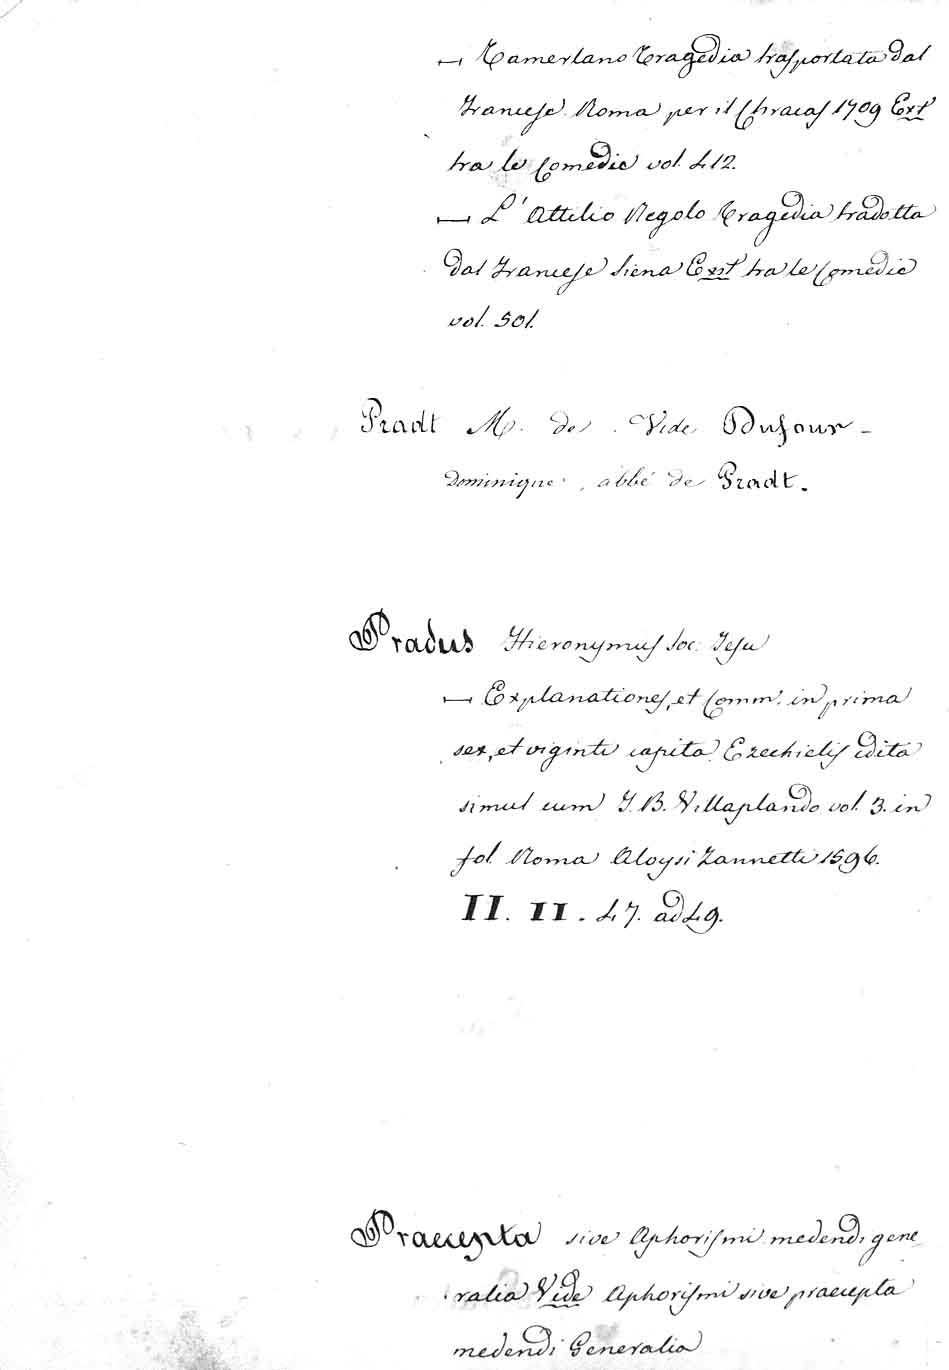 — Tamerlano Tragedia trasportata dal
Francese. Roma per il Chracas 1709 Ext
tra le Comedie vol. 412.
— L'Attilio Regolo Tragedia tradotta
dal Francese Siena Ext tra le Comedie
vol. 501.
Pradt M. de . Vide Dufour -
Dominique, abbé de Pradt.
Pradus Hieronymus Soc. Jesu
— Explanationes, et Comm. in prima
sex, et viginti capita Ezechielis edita
simul cum J. B. Villaplando vol. 3. in
fol. Roma Aloysi Zannetti 1596.
II. II. 47. ad 49.
Praecepta sive Aphorismi medendi gene
ralia Vide Aphorismi sive praecepta
medendi Generalia